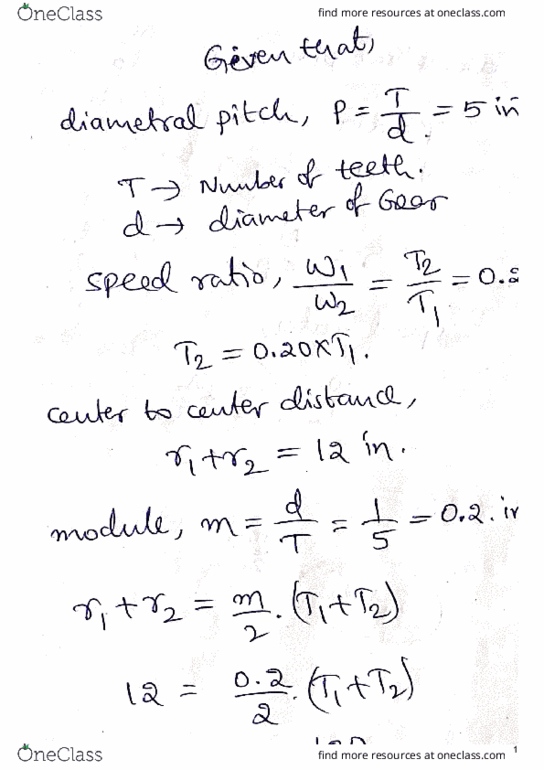 OneClass find more resources at oneclass.com
Given that,
diametral pitch, P = T/d. = 5 in
T → Number of teeth.
d → diameter of Gear
speed ratio, ω1/ω2 = T2/T1 = 0.2
T2 = 0.20×T1.
center to center distance,
r1+r2 = 12 in.
module, m = d/T = 1/5 = 0.2. in
r1+r2 = m/2.(T1+T2)
12 = 0.2/2.(T1+T2)
OneClass find more resources at oneclass.com 1